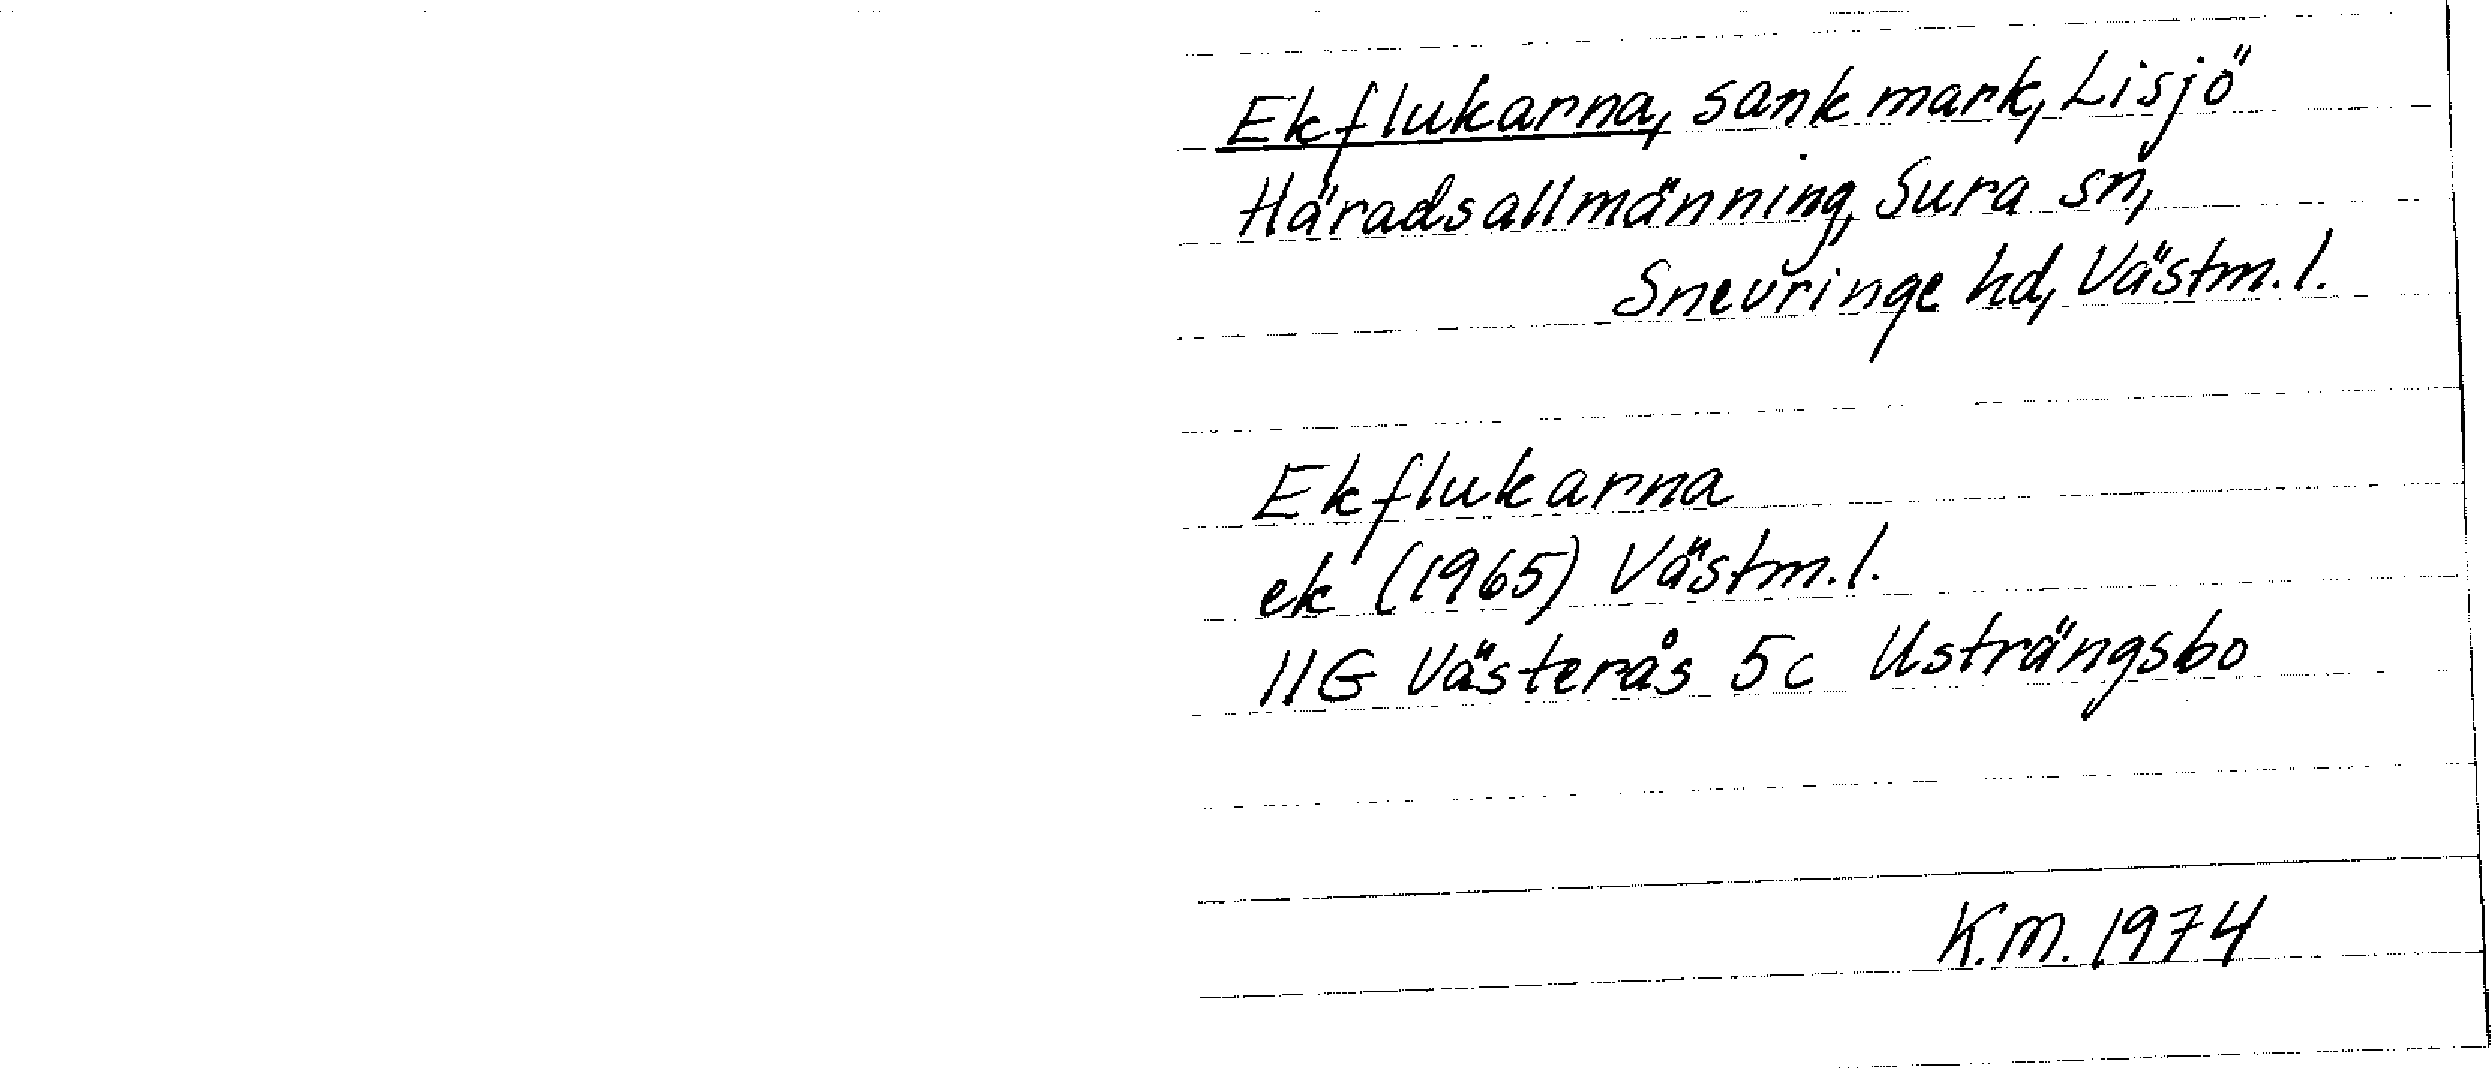 Ekflukarna, sank mark, Lisjö
Häradsallmänning, Sura sn,
Snevringe hd, Västm.l.
Ekflukarna
ek (1965) Västm.l.
11G Västerås 5c Usträngsbo
K.M. 1974